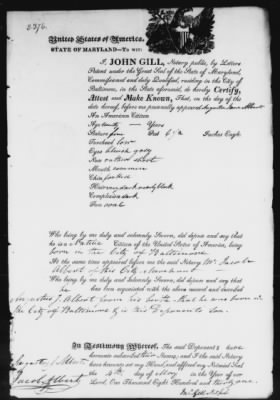 2376.
United States of America,
STATE OF MARYLAND—To wit:
I, JOHN GILL, Notary public, by Letters
Patent under the Great Seal of the State of Maryland,
Commissioned and duly Qualified, residing in the City of
Baltimore, in the State aforesaid, do hereby Certify,
Attest and Make Known, That, on the day of the
date hereof, before me personally appeared Augustus James Albert
An American Citizen
Age twenty — Years
Stature five Feet 6 1/2 Inches Engh.
Forehead low
Eyes
Nose short
Mouth common
Chin
Hair
Complexion dark
Face oval
Who being by me duly and solemnly Sworn, did depose and say that
he is a Native Citizen of the United States of America, being
born in the City of Baltimore
At the same time appeared before me the said Notary Mr. Jacob
Albert of the City
Who being by me duly and solemnly Sworn, did depose and say that
he is acquainted with the above named and
J. Albert from his birth that he was born in
the City of Baltimore & is this Deponents Son
In Testimony Whereof, The said Deponents have
hereunto subscribed their Names, and I the said Notary
have hereunto set my Hand, and affixed my Notarial Seal
the 4th day of May in the Year of our
Lord, One Thousand Eight Hundred and thirty one.
Augustus J Albert
Jacob Albert
Jno Gill